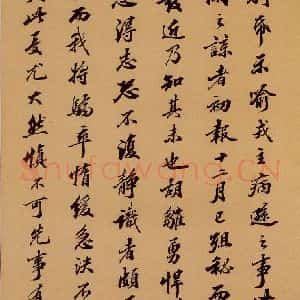 希示喻戎主病遁之事
之諒者初報十月已殂秘而
最近乃知其未也胡雛勇悍
得志恐不復靜識者頗
而我將驕卒惰緩急決不
此憂尤大然慎不可先事有
Shufawang.CN